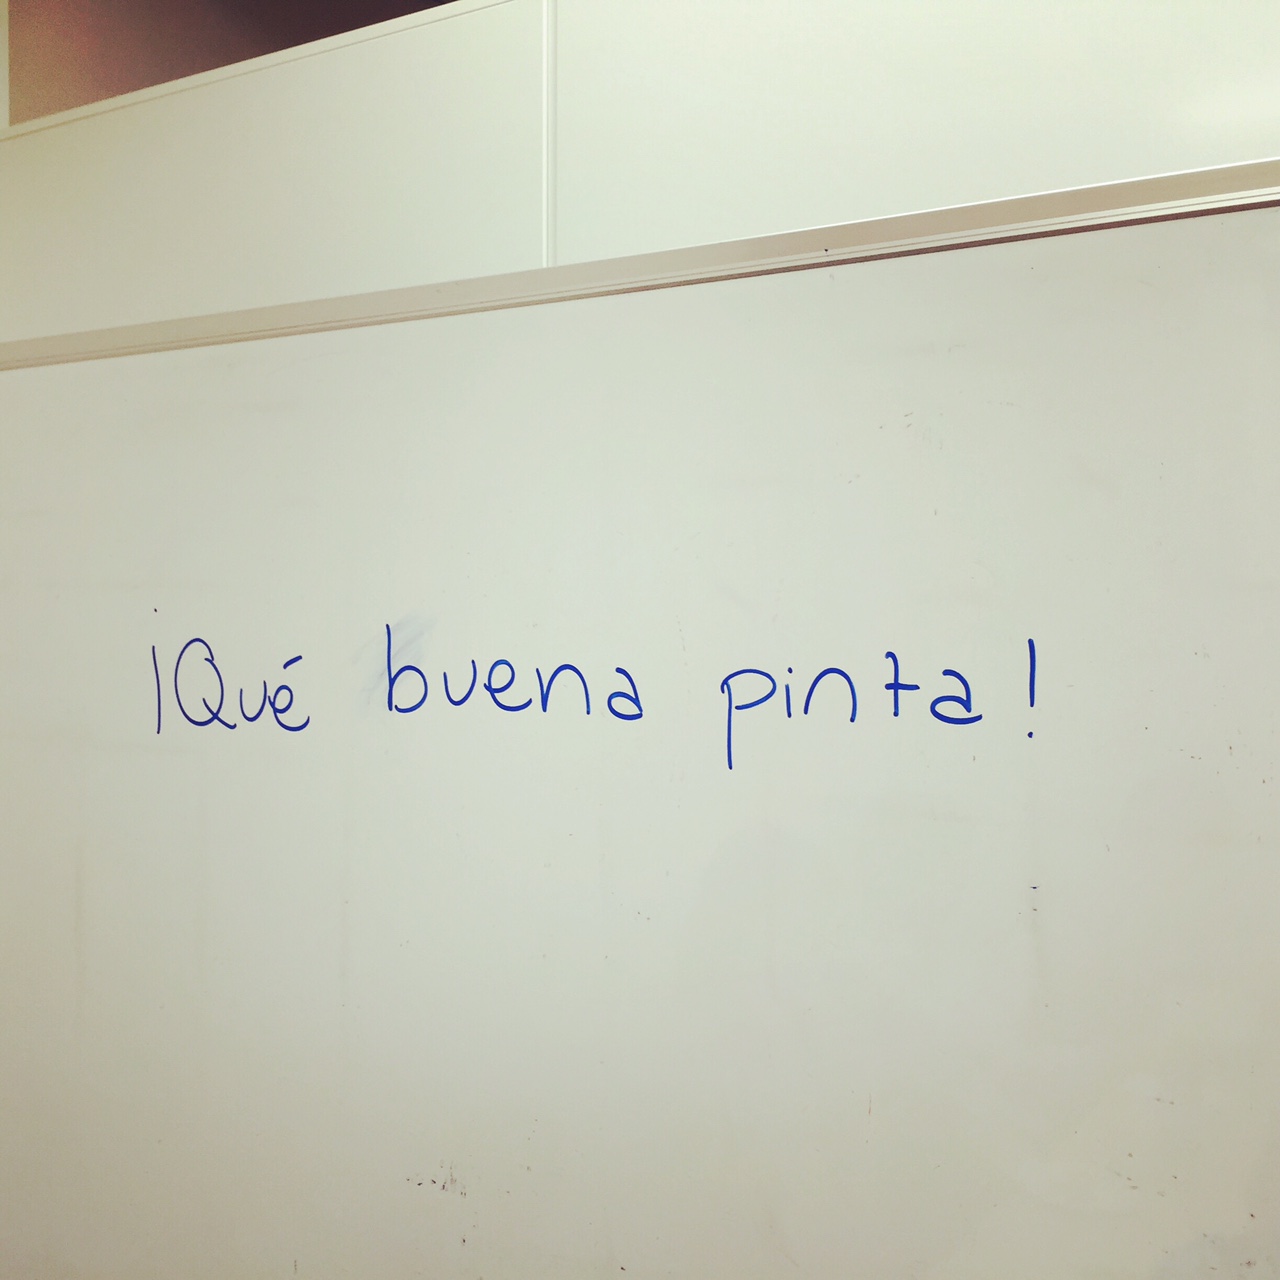 ¡Qué buena pinta!